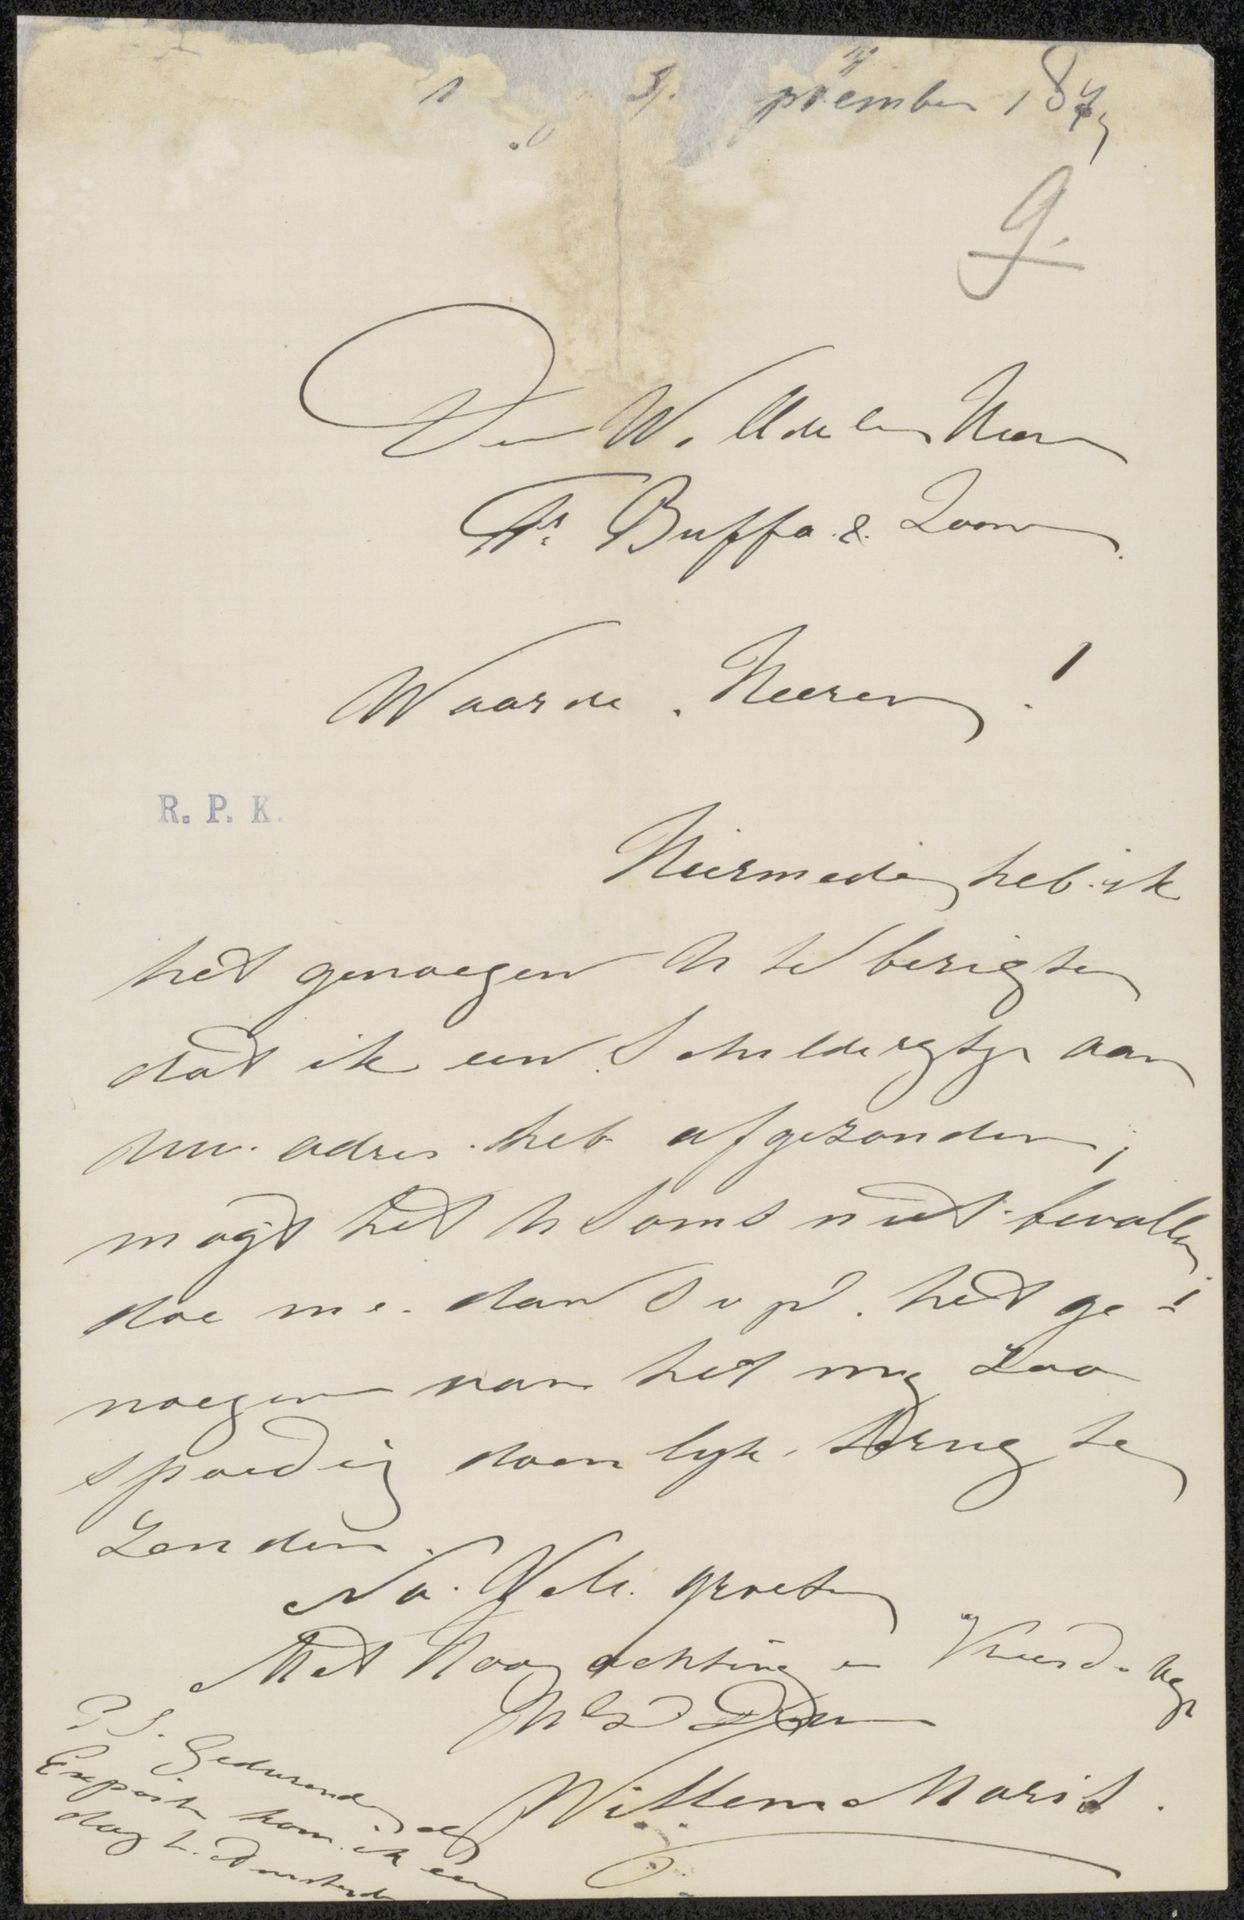 ptember 1877
9.
Den W. Eldele Heeren
Fs. Buffa & Zoonen.
Waarde Heeren!
R. P. K.
Hiermede heb ik
het genoegen U te berigten
dat ik een Schilderytje aan
uw adres heb afgezonden,
mogt het U soms niet bevallen
doe me dan s v p. het ge-
noegen van het my zoo
spoedig doenlyk terug te
zenden.
Na. Vele groeten
Met Hoogachting en
UEd Dien
Willem Maris.
P S. Gedurende de
Expositie kom ik een
dag t. Amsterdam